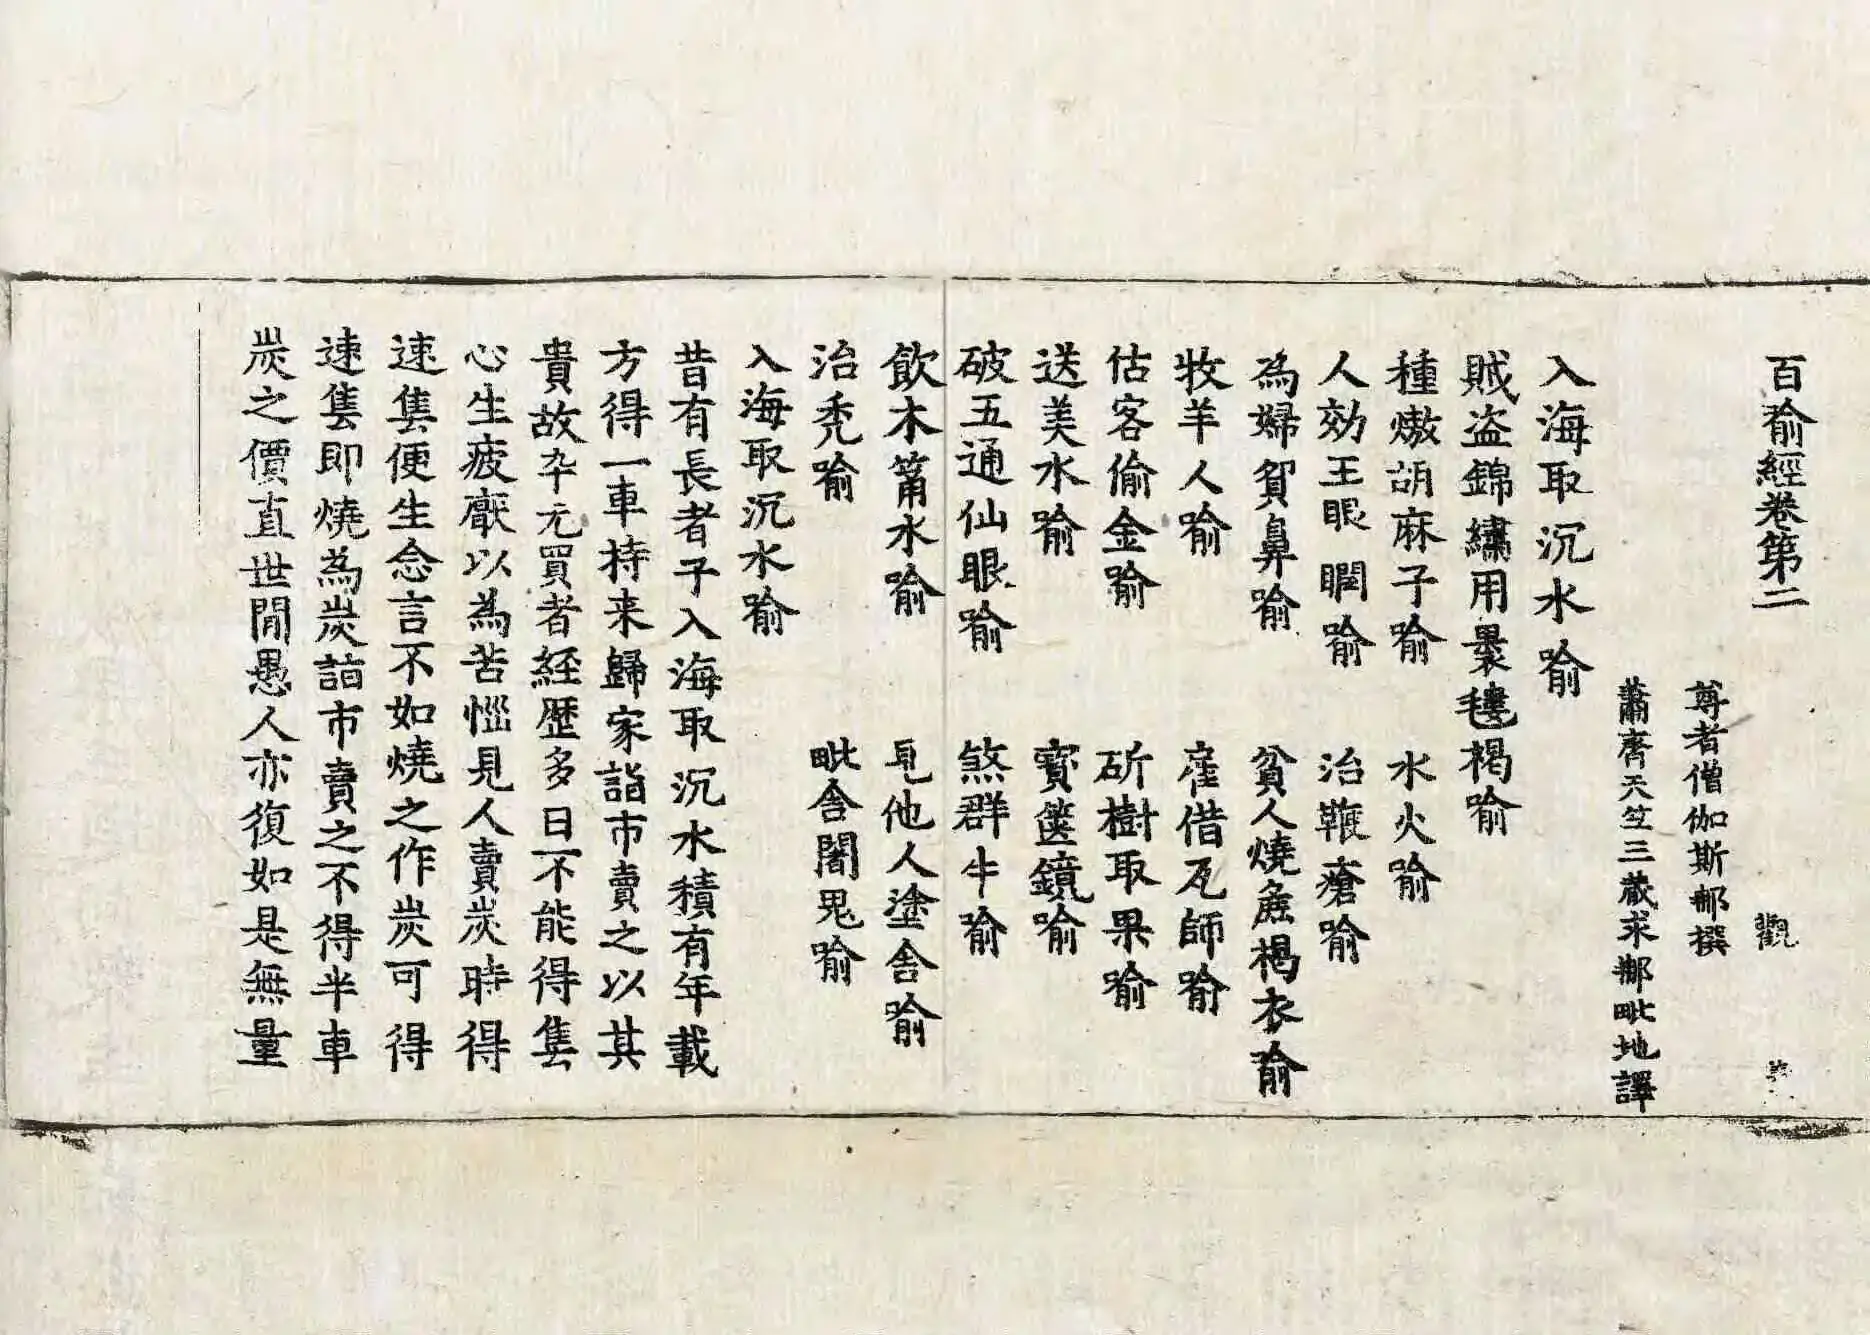 百喻經卷第二　觀
尊者僧伽斯那撰
蕭齊天竺三藏求那毗地譯
入海取沉水喻
賊盗錦繡用褁氀褐喻
種熬胡麻子喻　水火喻
人効王眼瞤喻　治鞭瘡喻
為婦貿鼻喻　貧人燒麁褐衣喻
牧羊人喻　雇借瓦師喻
估客偷金喻　斫樹取果喻
送美水喻　寶篋鏡喻
破五通仙眼喻　煞群牛喻
飲木筩水喻　見他人塗舍喻
治禿喻　毗舍闍鬼喻
入海取沉水喻
昔有長者子入海取沉水積有年載
方得一車持来歸家詣市賣之以其
貴故卒无買者経歷多日不能得售
心生疲厭以為苦惱見人賣炭時得
速售便生念言不如燒之作炭可得
速售即燒為炭詣市賣之不得半車
炭之價直世間愚人亦復如是無量